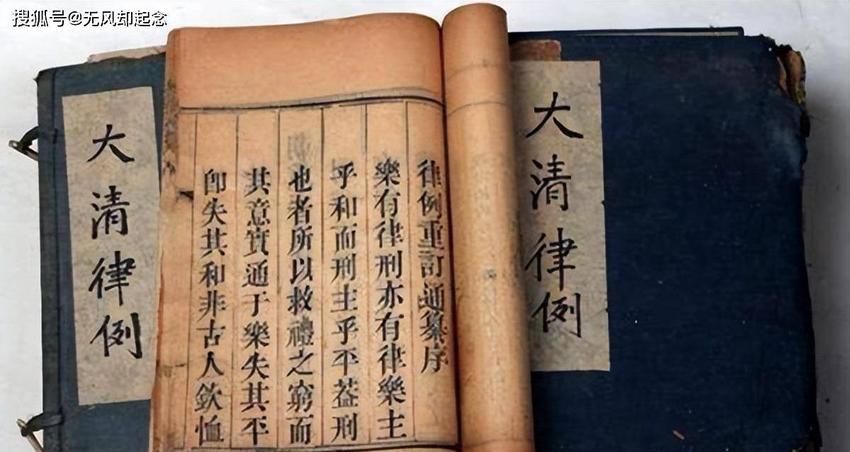 搜狐号@无风却起念
大清律例
律例重訂通纂序
樂有律刑亦有律樂主
乎和而刑主乎平蓋刑
也者所以救禮之窮而
其意實通于樂失其平
卽失其和非古人欽恤
大清律例